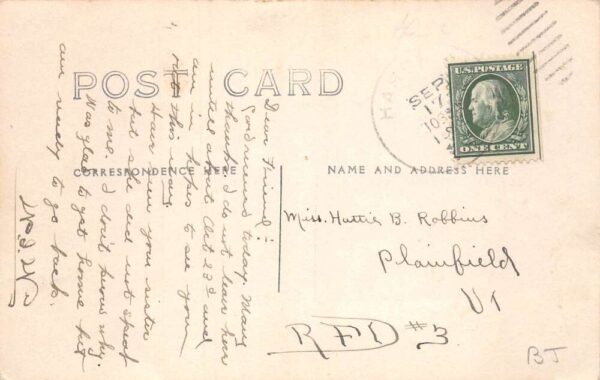 POST CARD
CORRESPONDENCE HERE
NAME AND ADDRESS HERE
U.S. POSTAGE
ONE CENT
SEP
17
Dear Friend:
Card received today. Many
thanks. I do not leave here
until about Oct 23d and
am in hopes to see you
this way
Have seen your sister
but she did not speak
to me. I don't know why.
Was glad to get home but
am ready to go back.
Miss. Hattie B. Robbins
Plainfield
Vt
RFD #3
BJ